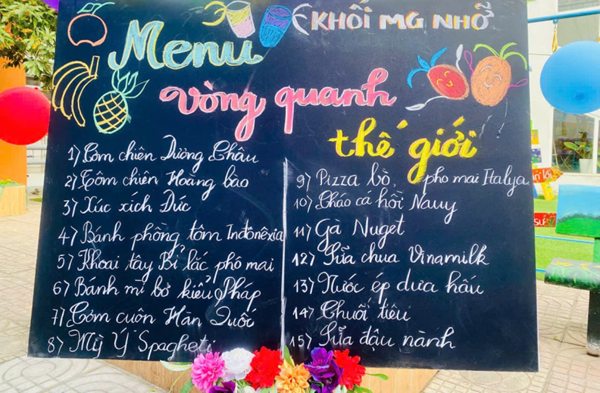 KHỐI MG NHỠ
Menu
vòng quanh
thế giới
1) Cơm chiên Dương Châu
2) Tôm chiên Hoàng bào
3) Xúc xích Đức
4) Bánh phồng tôm Indonêxia
5) Khoai tây Bỉ lắc phô mai
6) Bánh mì bơ kiểu Pháp
7) Cơm cuôn Hàn Quốc
8) Mỹ Ý Spagheti
9) Pizza bò pho mai Italya
10) Cháo cá hồi Nauy
11) Gà Nuget
12) Sữa chua Vinamilk
13) Nước ép dưa hấu
14) Chuối tiêu
15) Sữa đậu nành